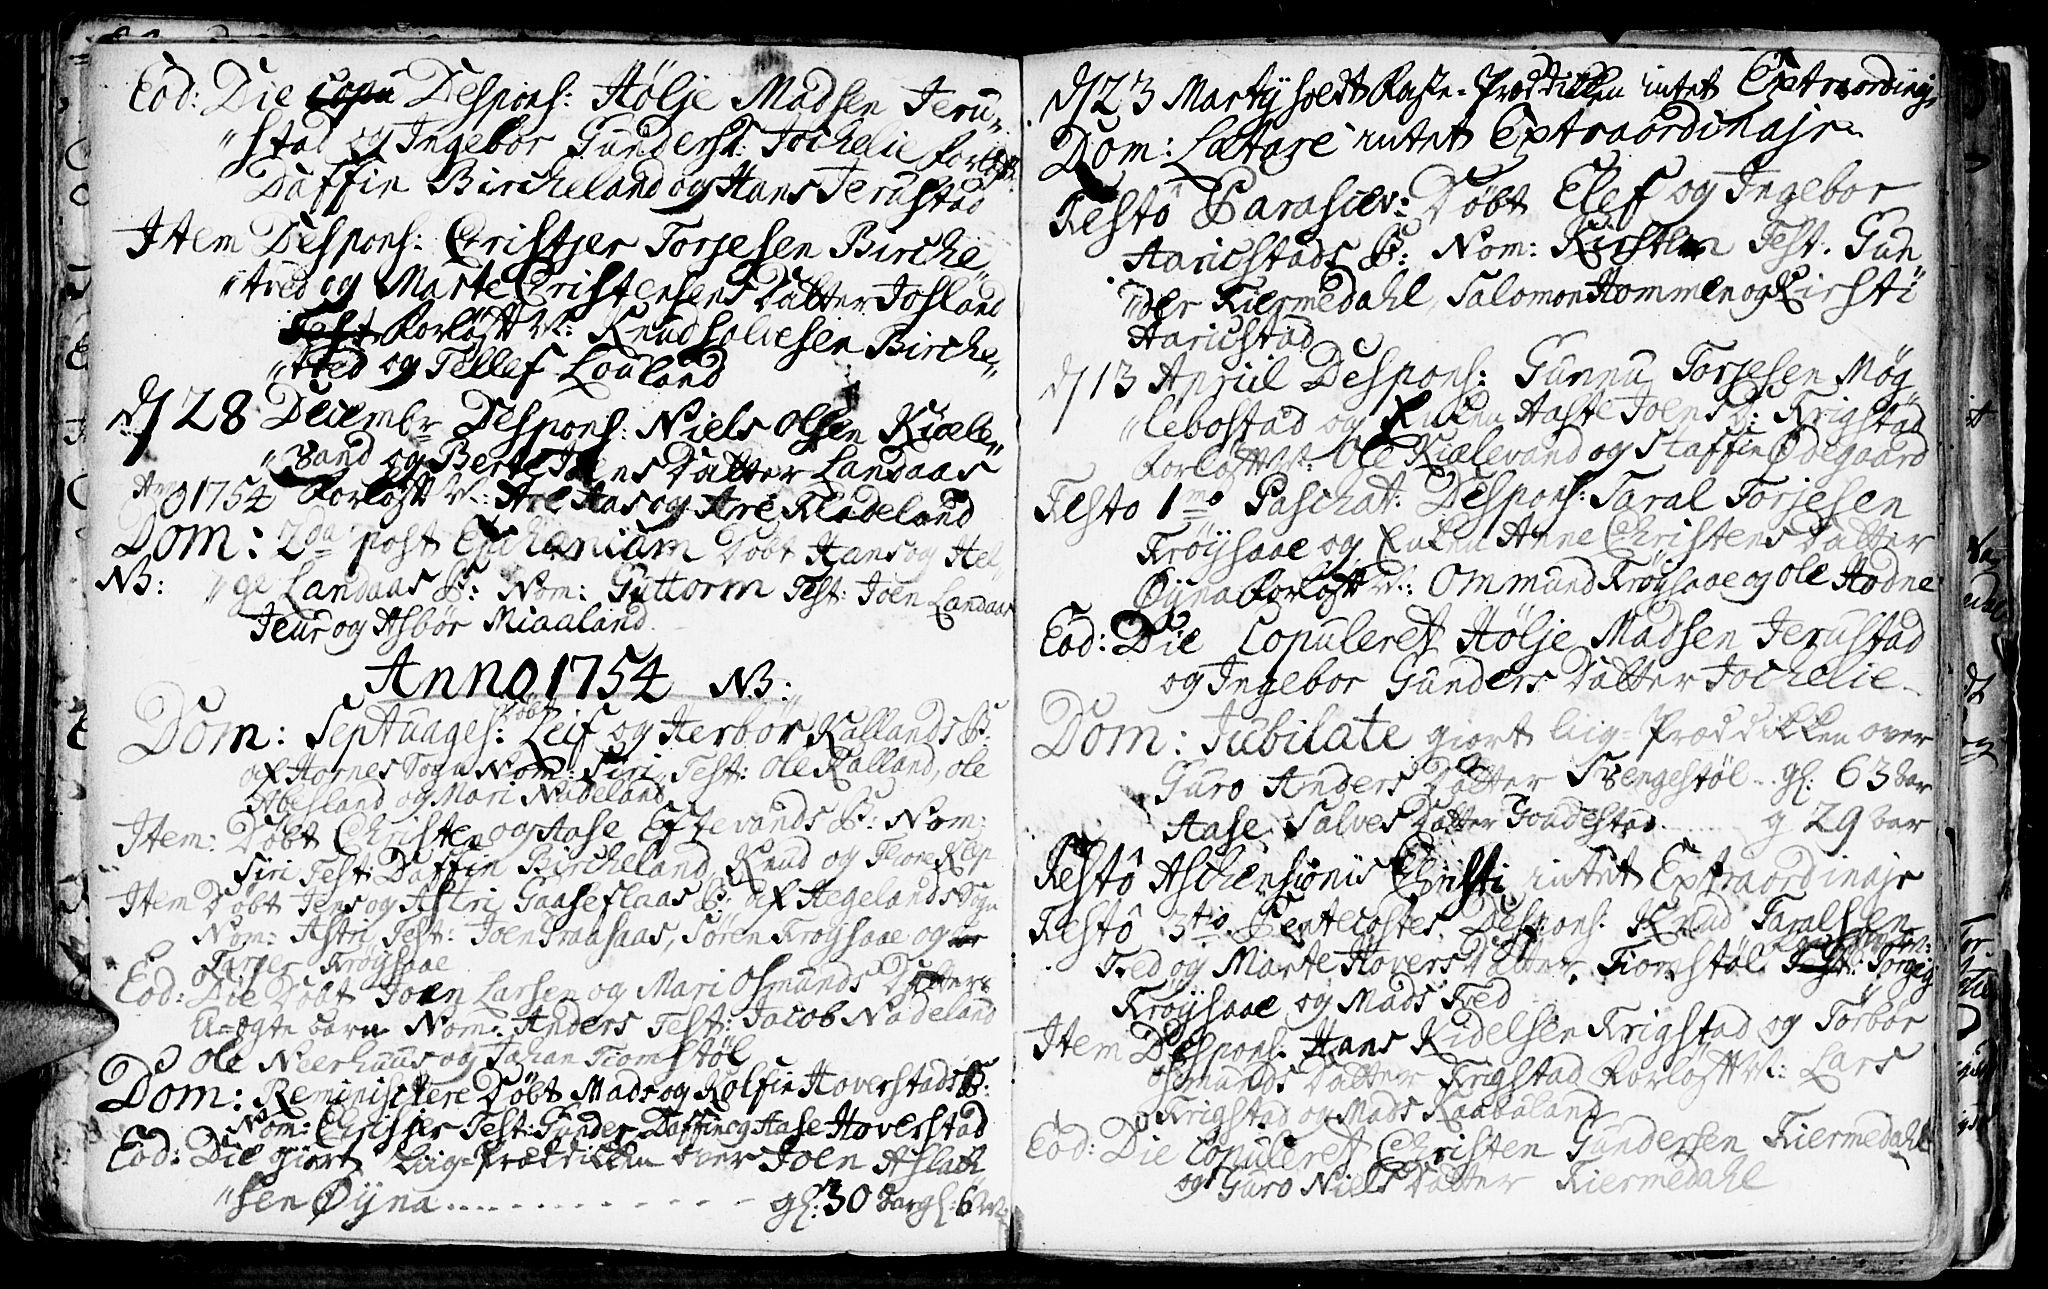 Eod: Die Copu Despons: Hølje Madsen Jeru„
„stad og Ingebor Gundersd: Jochelie Forløft:
Daffin Bircheland og Hans Jerustad
Item Despons: Christjer Torjesen Birche„
„tved og Marte Christensens Datter Josland
Test Forløftt M: Knud solvesen Birche„
„tved og Tellef Louland
d/ 28 Decembr Despons: Niels Olsen Kiæle„
„vand og Berte Joens Datter Landaas
Ano 1754 Forløftt M: Are Aas og Are Fladeland
Dom: 2da post Ephaniam Døbt Hans og Hel„
NB: „ge Landaas B: Nom: Guttorm Test: Joen Landaas
Jeur og Asbør Miaaland
Anno 1754 NB:
Dom: Septuages: Døbt Leif og Herbor Kallands B:
af Hornes Sogn Nom: Siri, Test: Ole Kalland, Ole
Abesland og Mari Nadeland
Item: Døbt Christen og Aase Eftevands B: Nom:
Siri Test: Daffin Bircheland, Knud og Tore Klep
Item Døbt Jens og Astri Gaaseflaas B: af Hegelands Sogn
Nom: Astri Test: Joen Traasaas, Søren Frøysaae og
Targer Frøysaae
Eod: Die Døbt Joen Larsen og Mari Osmunds Datters
U-ægte barn Nom: Anders Test: Jacob Nadeland
Ole Neerhuus og Johan Tiomstøl
Dom: Reminiscere Døbt Mads og Rolfin Hoverstads B:
Nom: Christjer Test: Gunder, Daffin og Aase Hoverstad
Eod: Die giort Liig-Prædikken over Joen Aslach
„sen Øyna . . . . . . . . . . gl: 30 aar gl: 6 M
d/ 23 Marty holdt Faste-Præddikken intet Extraordinaj:
Dom: Lætare intet Extraordinajr
Festo Parasiev: Døbt Elef og Ingebor
Haricstads B: Nom: Kirsten Test. Gun
„der Kiermedahl, Salomon Hommen og Kirsti
Haricstad
d/ 13 Apriil Despons: Gunnu Torjesen Møg„
„lebostad og Enken Aaste Joens D: Frigstad
Forløftt M: Ole Kiælevand og Staffin Ødegaard
Festo 1mo Paschat: Despons: Taral Torjesen
Frøysaae og Enken Anne Christens Datter
Øyna Forløftt M: Ommund Frøysaae og Ole Hodne
Eod: Die Copuleret Hølje Madsen Jerustad
og Ingebor Gunders Datter Jochelie
Dom: Jubilate giort liig-Præddikken over
Guro Anders Datter Svengestøl . . gl: 63 aar
Aase Salves Datter Joudestad . . . . . g 29 aar
Festô Aschensionis Christi intet Extraordinajr
Festô 3tio Pentecostes Despons: Knud Taralsen
Tved og Marte Hovers Datter Tiomstøl. Test: Forløft M: Torgiej
Frøysaae og Mads Tved
Item Despons. Hans Kidelsen Frigstad og Torbor
Osmunds Datter Frigstad Forløftt M: Lars
Frigstad og Mads Raabaland
Eod: Die Copuleret Christen Gundersen Kiermedahl
og Guro Niels Datter Kiermedahl